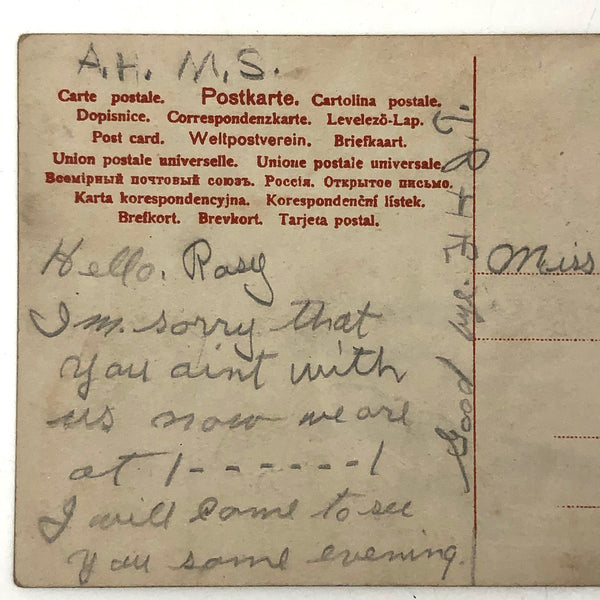 A.H. M.S.
Carte postale. Postkarte. Cartolina postale.
Dopisnice. Correspondenzkarte. Levelező-Lap.
Post card. Weltpostverein. Briefkaart.
Union postale universelle. Unione postale universale.
Всемірный почтовый союзъ. Россія. Открытое письмо.
Karta korespondencyjna. Korespondenční lístek.
Brefkort. Brevkort. Tarjeta postal.
Hello, Rosy
I'm sorry that
you aint with
us now we are
at |------|
I will come to see
you some evening.
Good
Miss